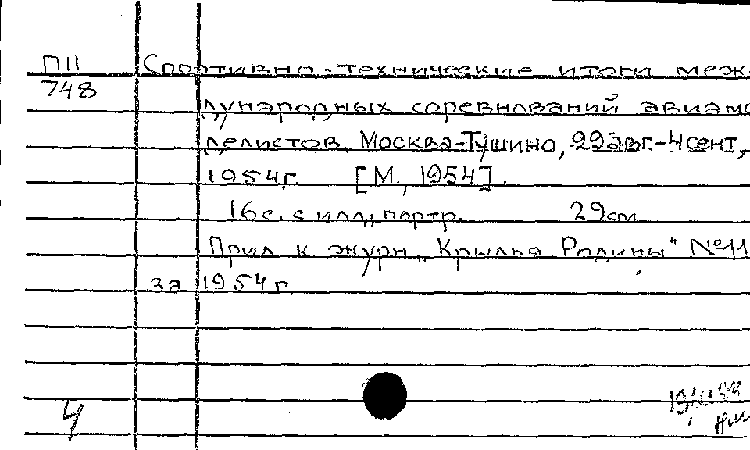 П11 Спортивно-технические итоги меж-
748
дународных соревнований авиамо
делистов. Москва-Тушино, 29авг.-4сент,
1954г. [М., 1954]
16 с. с илл., портр. 29см
Прил. к журн. „Крылья Родины" №11
за 1954 г.
4